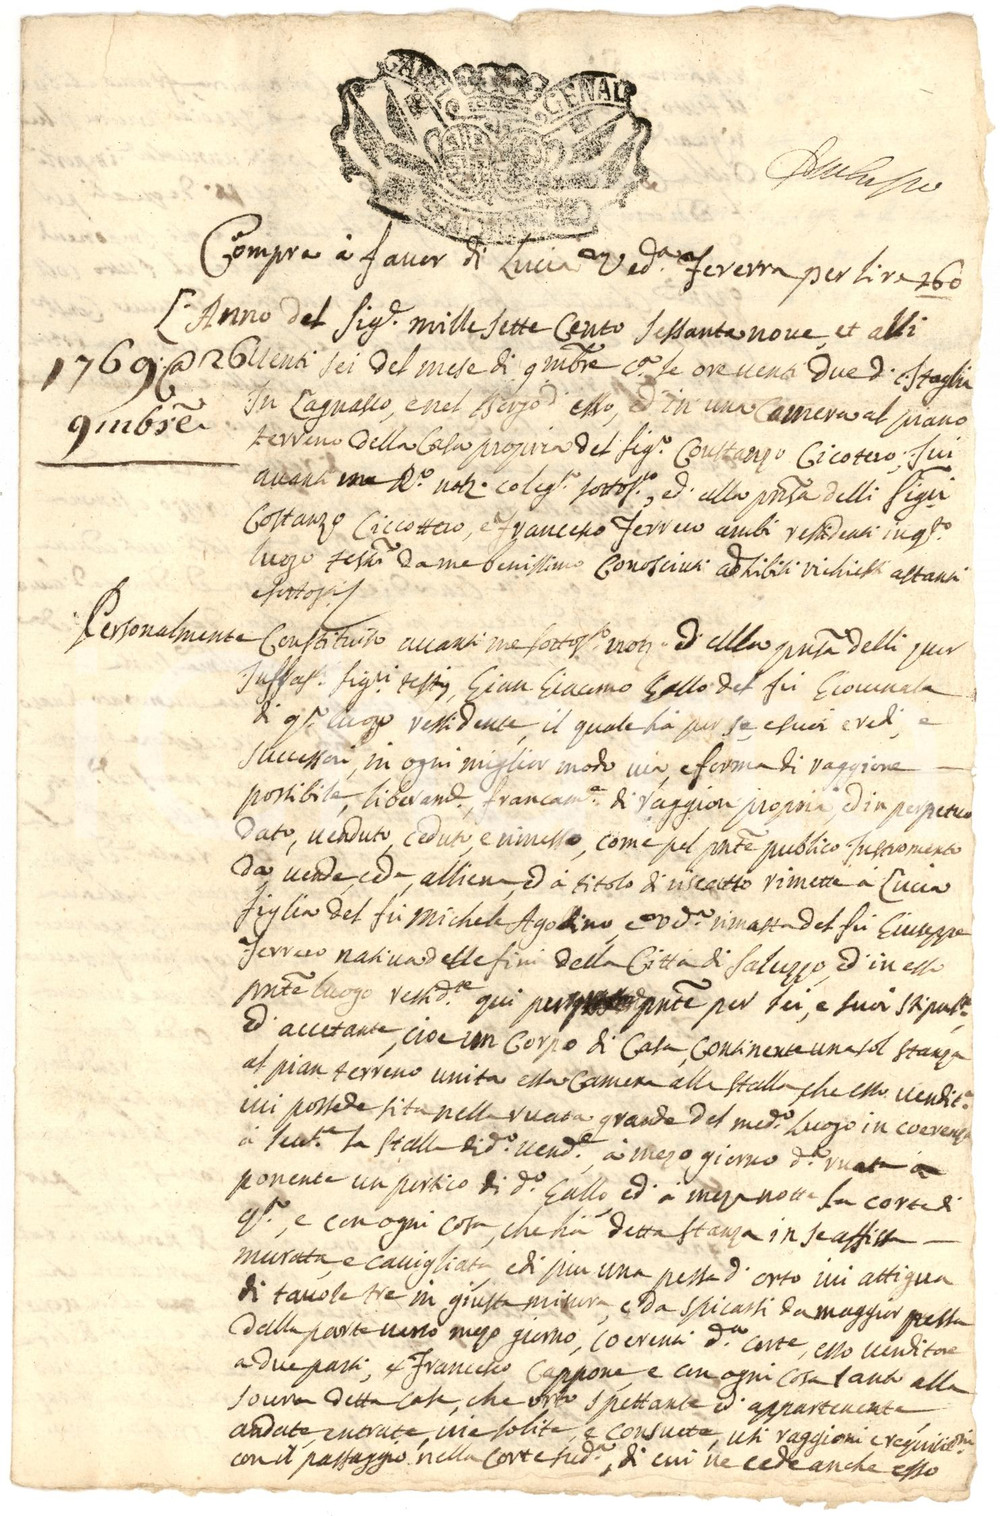 GAB GENAL
Compra à favor di Lucia Ved.a Ferrera per lire 160
L'Anno del Sig.r mille sette cento sessanta nove, et alli
1769 @ 26 venti sei del mese di 9mbre c.a le ore venti due d'Itaglia
9mbre
In Lagnasco, e nel Borgo d'esso, ed in una camera al piano
terreno della Casa propria del Sig.r Costanzo Cicotero, qui
avanti me R.o not.o coleg.o sottos.o, ed alla pntza delli Sigri
Costanzo Ciccottero, e Francesco Ferrero ambi ressidenti in q.to
luogo testi da me benissimo conosciuti adhibiti richiesti astanti
e sottos.i
Personalmente Constituito avanti me sottos.o not.o ed alla pntza delli pur
sud.i sig.ri testi, Gian Giacomo Gallo del fù
di q.to luogo ressidente, il quale hà per se, e suoi eredi, e
successori, in ogni miglior modo via, e forma di raggione
possibile, liberam.e, francam.e di raggion propria, ed in perpetuo
dato, venduto, ceduto, e rimesso, come pel pnte publico Instromento
da, vende, cede, alliena, ed à titolo di riscatto rimette à Lucia
figlia del fù Michele Agodino, e ved.a rimasta del fù Giuseppe
Ferrero nativa delle fini della Città di Saluzzo, ed in esso
pnte luogo ressid.te qui pnte per lei, e suoi stipul.te
ed accetante, cioè un Corpo di Casa, continente una sol stanza
al pian terreno unita essa Camera alla stalla che esso vendit.e
ivi possede sita nella ruata grande del med.o Luogo in coerenza
à lev.te la stalla di d.o vend.e, à mezo giorno d.a ruata à
ponente un portico di d.o Gallo, ed à meza notte la corte di
q.to, e con ogni cosa, che hà detta stanza in se affissa
murata, e cavigliata, e di più una pessa d'orto ivi attigua
di tavole tre in giusta misura, e da spicarsi da maggior pessa
dalla parte verso mezo giorno, coerenti d.a corte, esso venditore
a due parti, e Francesco Cappone, e con ogni cosa tanto alla
sovra detta casa, che orto spettante ed appartenente
andate, entrate, vie solite, e consuete, usi raggioni e requisizioni
con il passaggio nella Corte sud.a, di cui ne cede anche esso